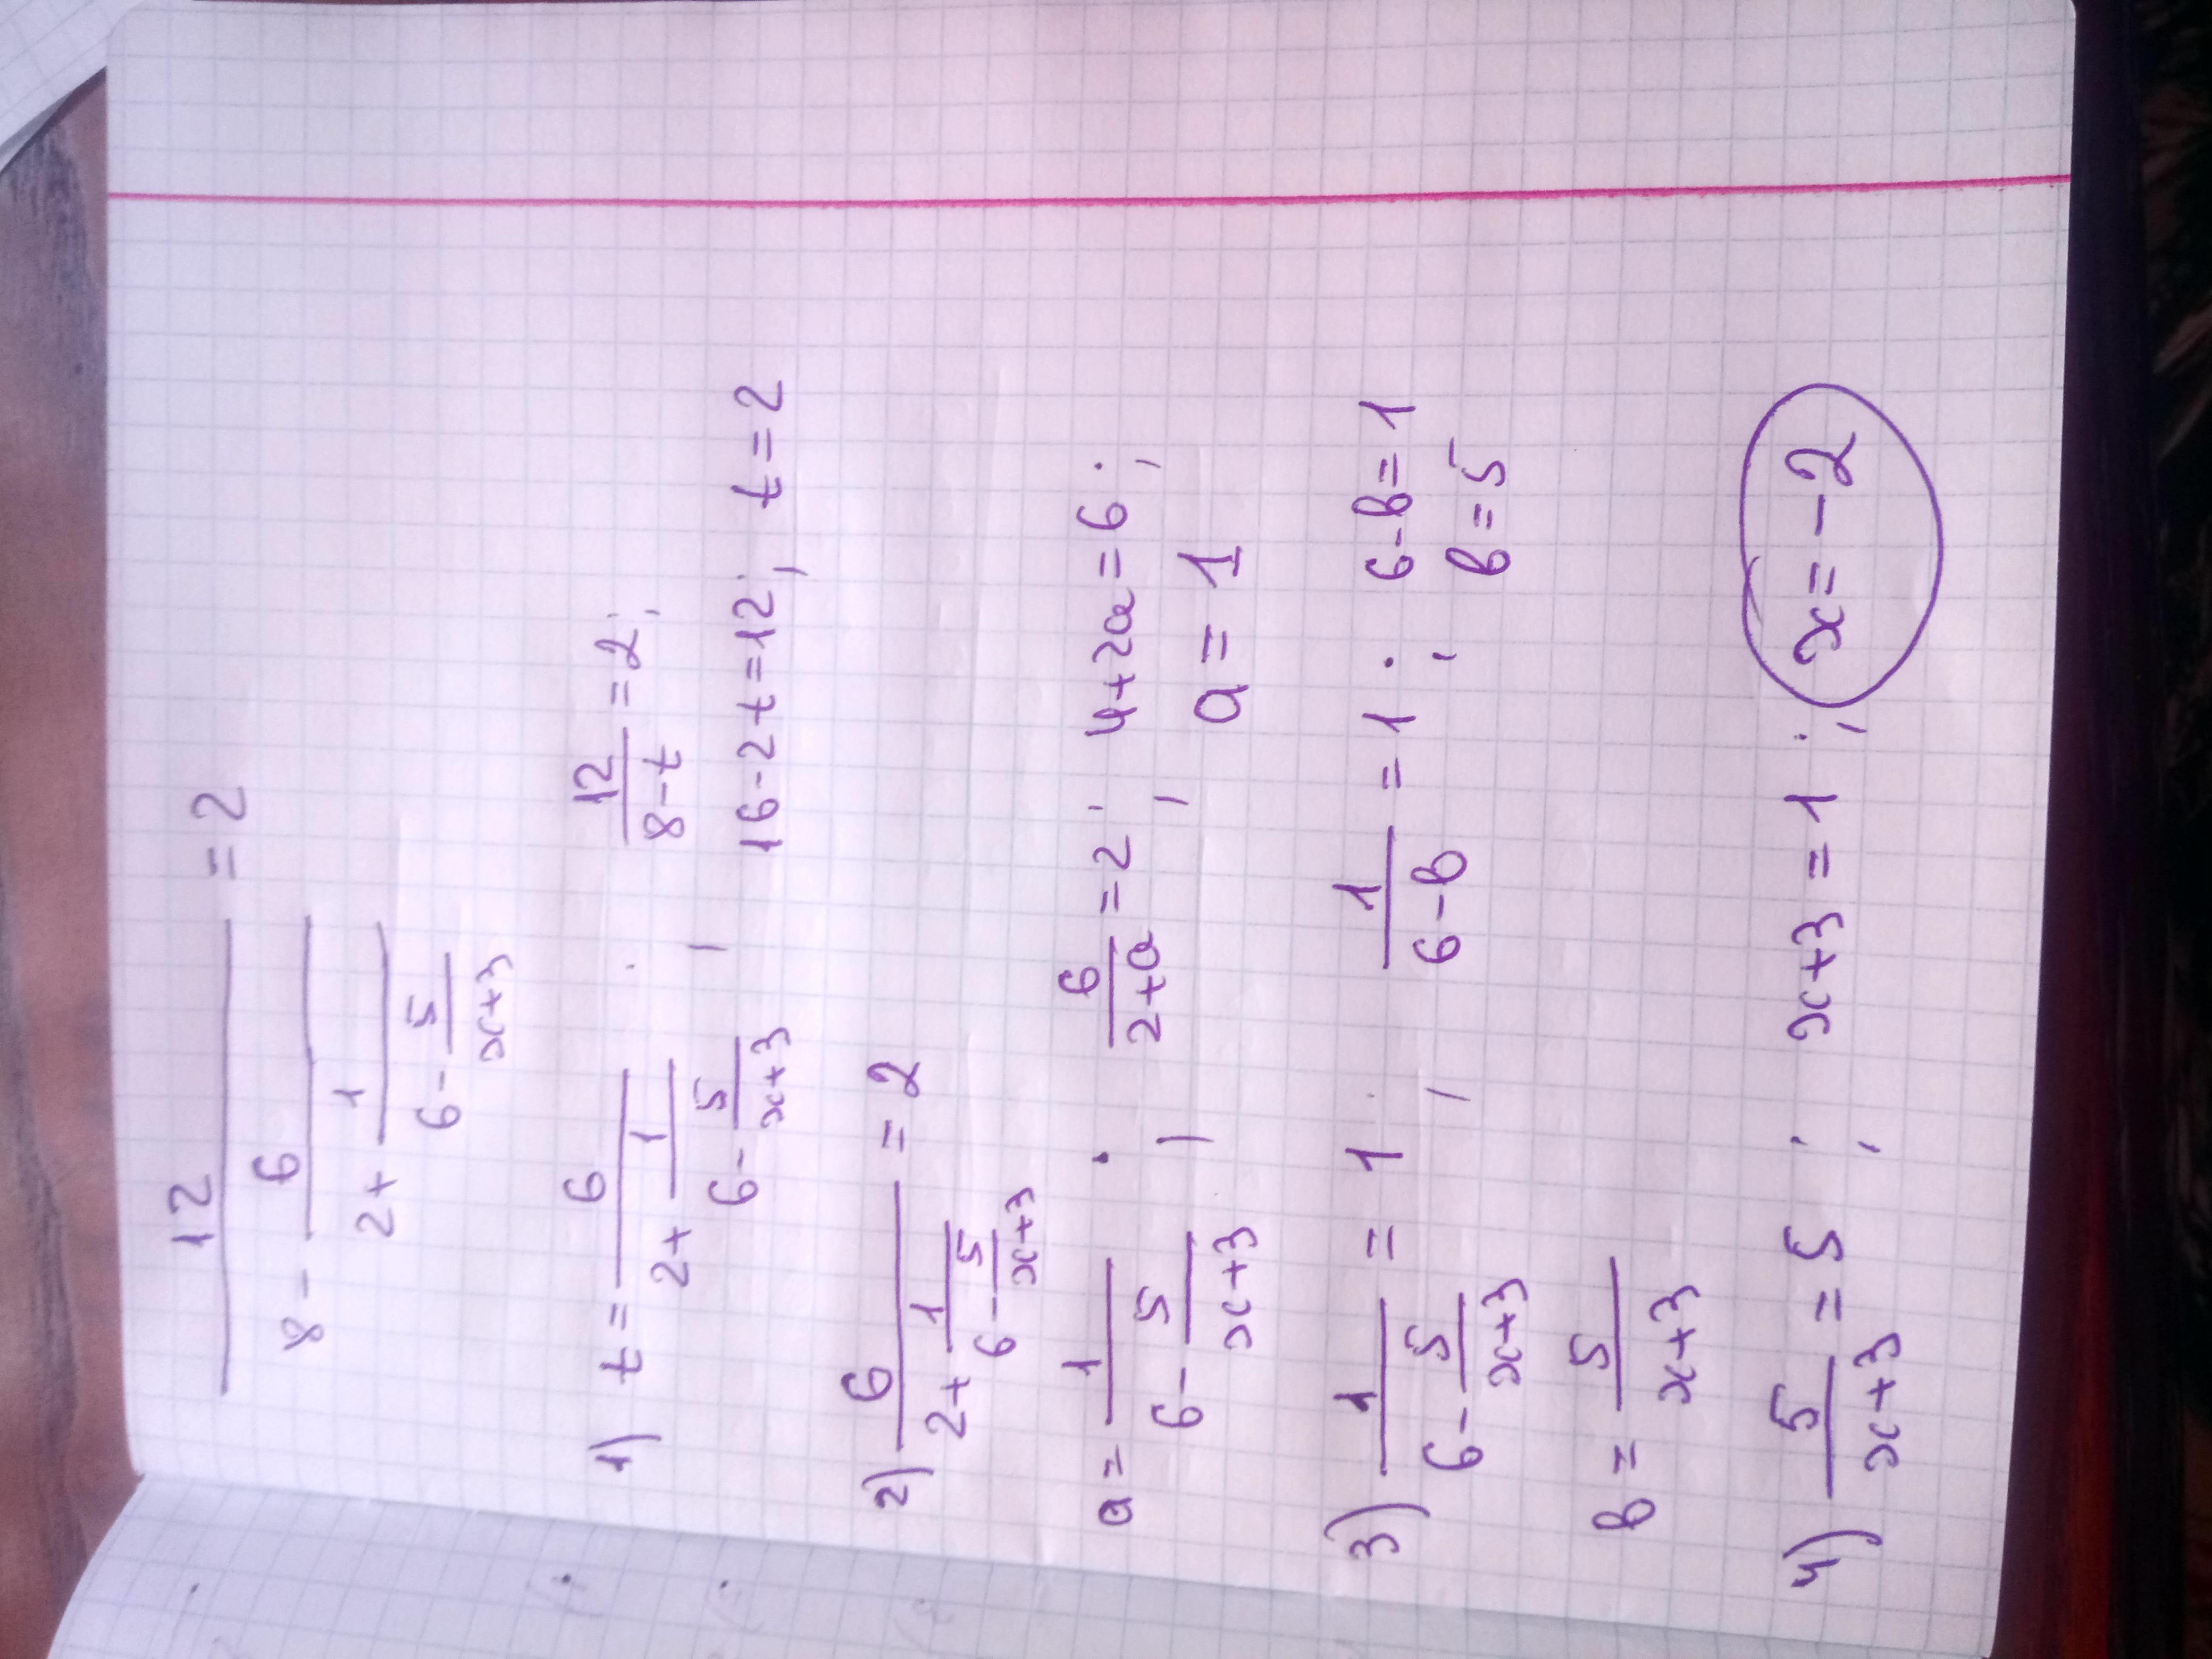 12 / (8 - 6 / (2 + 1 / (6 - 5 / (x+3)))) = 2
1) t = 6 / (2 + 1 / (6 - 5 / (x+3))) ; 12 / (8-t) = 2 ;
16-2t=12; t=2
2) 6 / (2 + 1 / (6 - 5 / (x+3))) = 2
a = 1 / (6 - 5 / (x+3)) ; 6 / (2+a) = 2 ; 4+2a=6 ;
a = 1
3) 1 / (6 - 5 / (x+3)) = 1 ; 1 / (6-в) = 1 ; 6-в=1
в=5
в = 5 / (x+3)
4) 5 / (x+3) = 5 ; x+3 = 1 ; x=-2